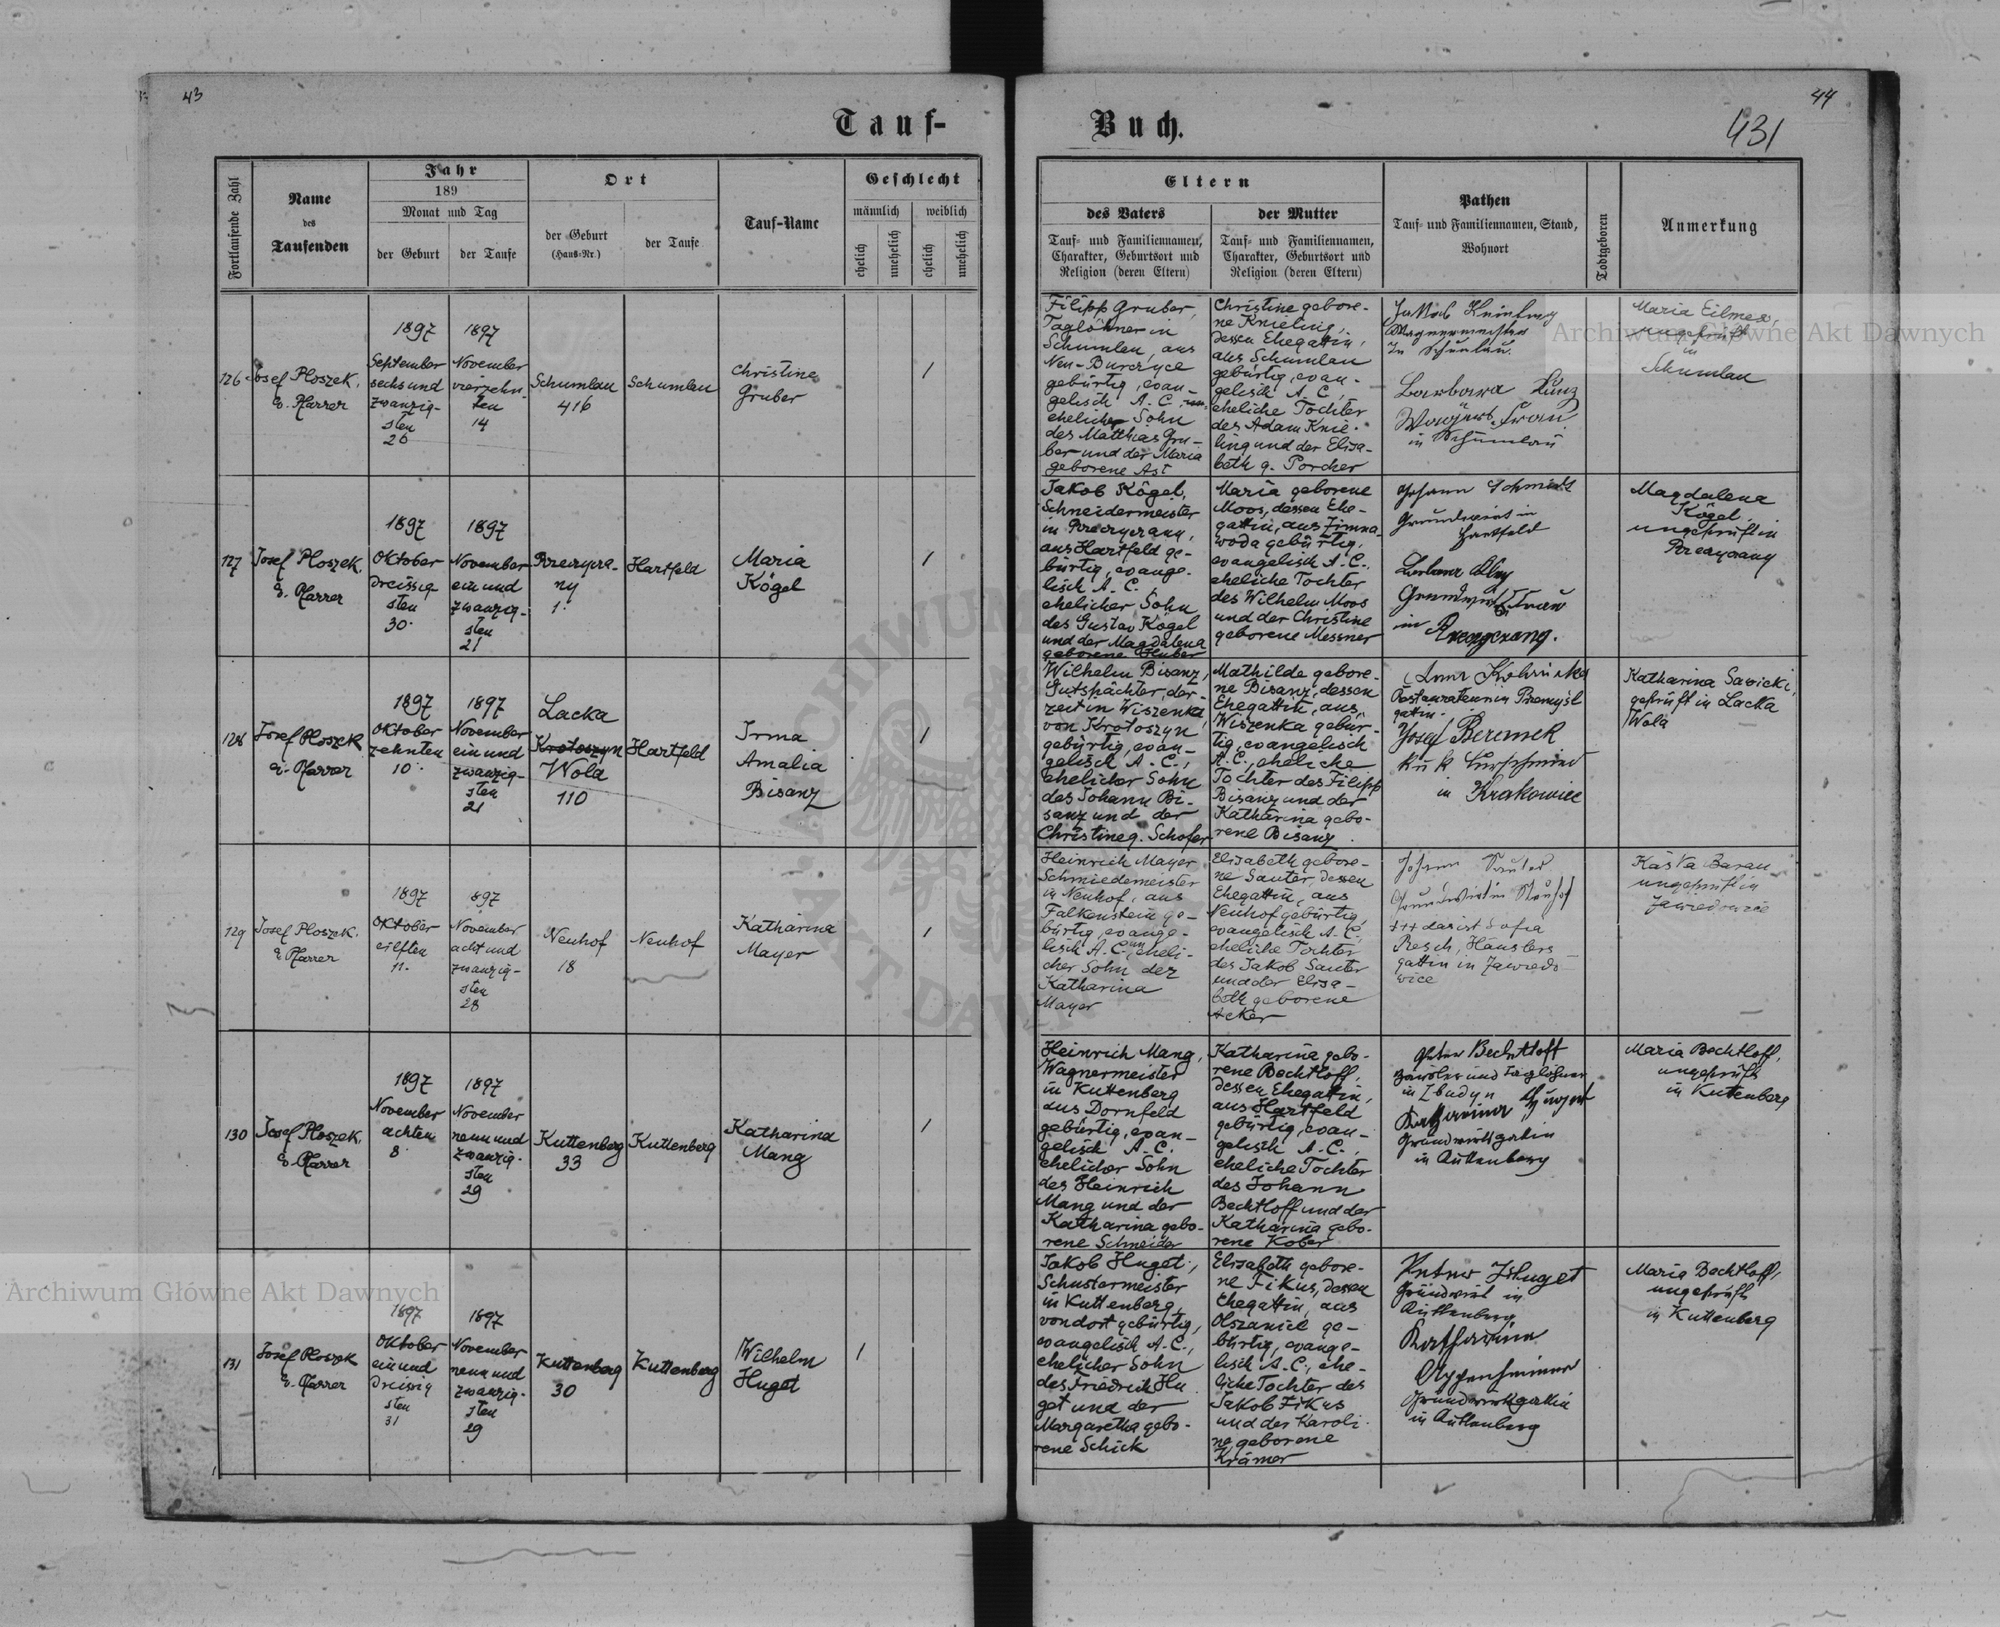 43
44
431
Tauf-
Buch.
Fortlaufende Zahl
Name
des
Taufenden
Jahr
189
Monat und Tag
der Geburt
der Taufe
Ort
der Geburt
(Haus-Nr.)
der Taufe
Tauf-Name
Geschlecht
männlich
weiblich
ehelich
unehelich
ehelich
unehelich
Eltern
des Vaters
Tauf- und Familiennamen,
Charakter, Geburtsort und
Religion (deren Eltern)
der Mutter
Tauf- und Familiennamen,
Charakter, Geburtsort und
Religion (deren Eltern)
Pathen
Tauf- und Familiennamen, Stand,
Wohnort
Todtgeboren
Anmerkung
126
Josef Ploszek,
e. Pfarrer
1897
September
sechs und
zwanzig-
sten
26
1897
November
vierzehn-
ten
14
Schumlau
416
Schumlau
Christine
Gruber
1
Filipp Gruber,
Taglöhner in
Schumlau, aus
Neu-Burczyce
gebürtig, evan-
gelisch A. C.
ehelicher Sohn
des Matthias Gru-
ber und der Maria
geborene Ast
Christine gebore-
ne Knieling,
dessen Ehegattin,
aus Schumlau
gebürtig, evan-
gelisch A. C.,
eheliche Tochter
des Adam Knie-
ling und der Elisa-
beth g. Porcher
Jakob
Wagnermeister
in Schumlau.
Barbara Kunz
Wagners Frau
in Schumlau
Maria Eilmes,
ungeprüft
in
Schumlau
127
Josef Ploszek,
e. Pfarrer
1897
Oktober
dreissig
sten
30.
1897
November
ein und
zwanzig-
sten
21
Przeczyca-
ny
1.
Hartfeld
Maria
Kögel
1
Jakob Kögel,
Schneidermeister
in
aus Hartfeld ge-
bürtig, evange-
lisch A. C.
ehelicher Sohn
des Gustav Kögel
und der Magdalena
geborene Huber
Maria geborene
Moos, dessen Ehe-
gattin, aus Zimna-
woda gebürtig,
evangelisch A. C.,
eheliche Tochter
des Wilhelm Moos
und der Christine
geborene Messner
Johann Schmidt
Grundwirt in
Hartfeld
Barbara
Grundwirts Frau
in
Magdalena
Kögel,
ungeprüft in
128
Josef Ploszek
e. Pfarrer
1897
Oktober
zehnten
10.
1897
November
ein und
zwanzig-
sten
21
Lacka
Krotoszyn
Wola
110
Hartfeld
Irma
Amalia
Bisanz
1
Wilhelm Bisanz,
Gutspächter, der-
zeit in Wiszenka,
von Krotoszyn
gebürtig, evan-
gelisch A. C.,
ehelicher Sohn
des Johann Bi-
sanz und der
Christine g. Schofer
Mathilde gebore-
ne Bisanz, dessen
Ehegattin, aus
Wiszenka gebür-
tig, evangelisch
A. C., eheliche
Tochter des Filipp
Bisanz und der
Katharina gebo-
rene Bisanz
Restaurateur in Przemyśl
gattin.
Josef
k u k Curschmied
in Krakowiec
Katharina Sawicki,
geprüft in Lacka
Wola
129
Josef Ploszek,
e. Pfarrer
1897
Oktober
eilften
11.
897
November
acht und
zwanzig-
sten
28
Neuhof
18
Neuhof
Katharina
Mayer
1
Heinrich Mayer
Schmiedemeister
in Neuhof, aus
Falkenstein ge-
bürtig, evange-
lisch A. C. un eheli-
cher Sohn der
Katharina
Mayer
Elisabeth gebore-
ne Sauter, dessen
Ehegattin, aus
Neuhof gebürtig,
evangelisch A. C.,
eheliche Tochter
des Jakob Sauter
und der Elisa-
beth geborene
Acker
Johann Sauter
Grundwirt in Neuhof
+++ das ist Sofia
Resch, Häuslers
gattin in Zawido-
wice
Kaśka Baran
ungeprüft in
Zawidowice
130
Josef Ploszek,
e. Pfarrer
1897
November
achten
8.
1897
November
neun und
zwanzig-
sten
29
Kuttenberg
33
Kuttenberg
Katharina
Mang
1
Heinrich Mang,
Wagnermeister
in Kuttenberg
aus Dornfeld
gebürtig, evan-
gelisch A. C.
ehelicher Sohn
des Heinrich
Mang und der
Katharina gebo-
rene Schneider
Katharina gebo-
rene Bechtloff,
dessen Ehegattin,
aus Hartfeld
gebürtig, evan-
gelisch A. C.,
eheliche Tochter
des Johann
Bechtloff und der
Katharina gebo-
rene Kober
Peter Bechtloff
und Taglöhner
in Zbadyn
Katharina Huget
Grundwirtsgattin
in Kuttenberg
Maria Bechtloff,
ungeprüft
in Kuttenberg
131
Josef Ploszek
e. Pfarrer
1897
Oktober
ein und
dreissig
sten
31
1897
November
neun und
zwanzig-
sten
29
Kuttenberg
30
Kuttenberg
Wilhelm
Huget
1
Jakob Huget,
Schustermeister
in Kuttenberg,
von dort gebürtig,
evangelisch A. C.,
ehelicher Sohn
des Friedrich Hu
get und der
Margaretha gebo-
rene Schick
Elisabeth gebore-
ne Fikus, dessen
Ehegattin, aus
Olszanice ge-
bürtig, evange-
lisch A. C., ehe-
liche Tochter des
Jakob Fikus
und der Karoli
ne geborene
Krämer
Peter Huget
Grundwirt in
Kuttenberg
Katharina
Oppenheimer
Grundwirtsgattin
in Kuttenberg
Maria Bechtloff,
ungeprüft
in Kuttenberg
Archiwum Główne Akt Dawnych
Archiwum Główne Akt Dawnych